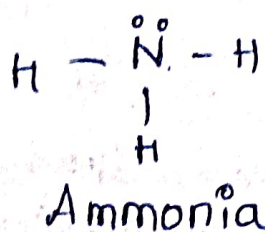 H - N - H
|
H
Ammonia